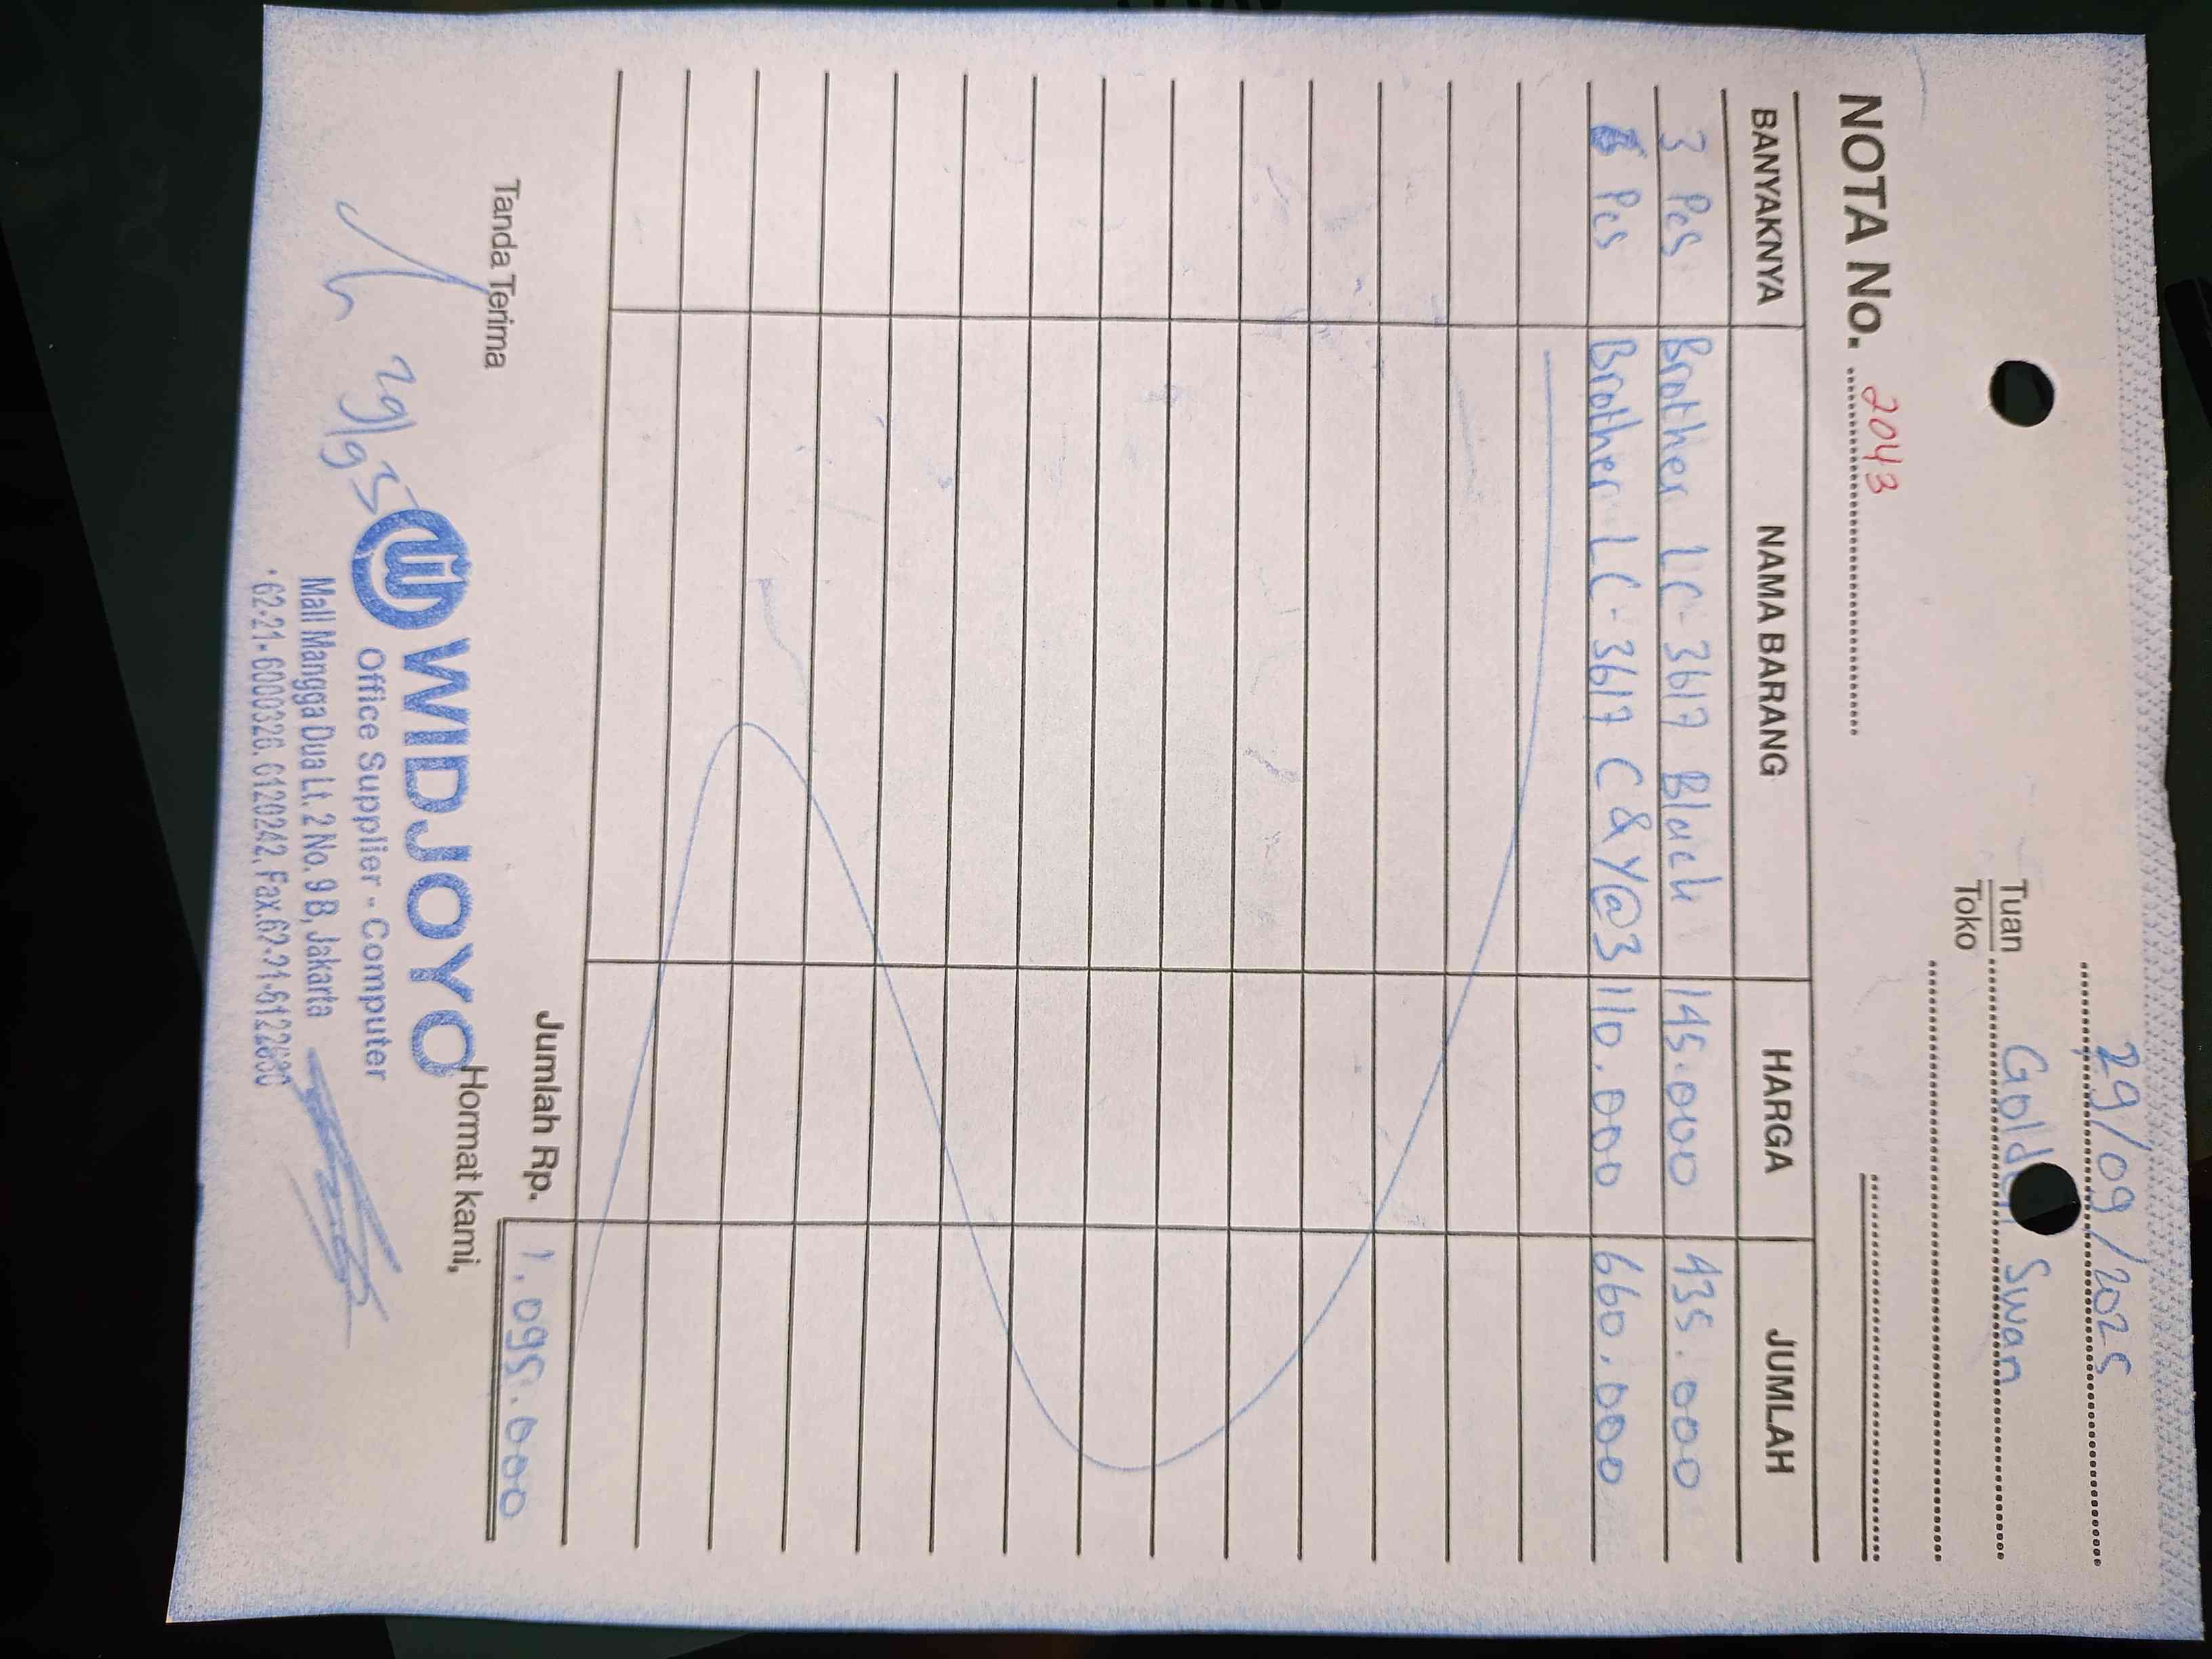 29/09/2025
Tuan Golden Swan
Toko
NOTA No. 2043
BANYAKNYA NAMA BARANG HARGA JUMLAH
3 Pcs Brother LC-3617 Black 145.000 435.000
6 Pcs Brother LC-3617 C & Y @3 110.000 660.000
Jumlah Rp. 1.095.000
Tanda Terima Hormat kami,
29/9 25
WIDJOYO
Office Supplier - Computer
Mall Mangga Dua Lt. 2 No. 9 B, Jakarta
62-21-6000326, 6120242, Fax.62-21-6122680